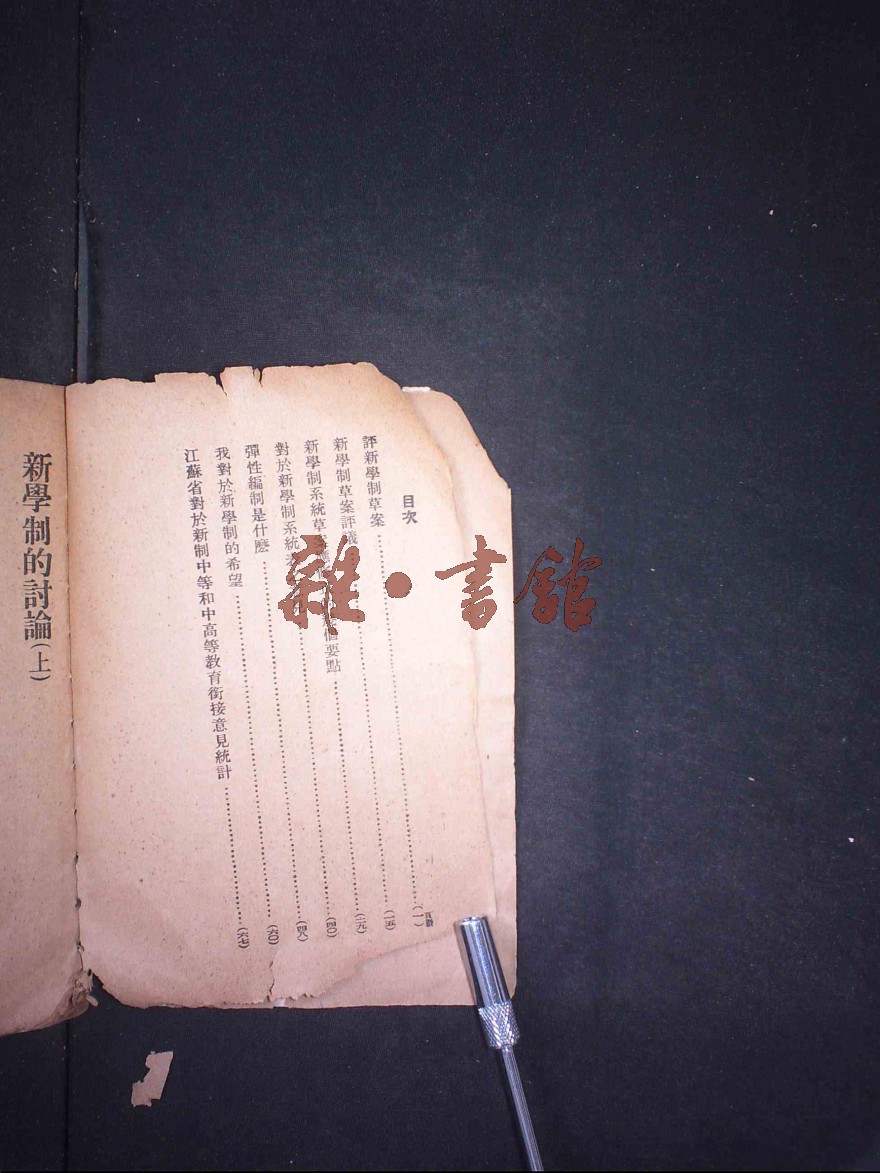 目次
頁數
評新學制草案………(一)
新學制草案評議………(一五)
新學制系統草 個要點………(二九)
對於新學制系統草………(四〇)
彈性編制是什麽………(四八)
我對於新學制的希望………(六〇)
江蘇省對於新制中等和中高等教育銜接意見統計………(六七)
新學制的討論(上)
雜·書館